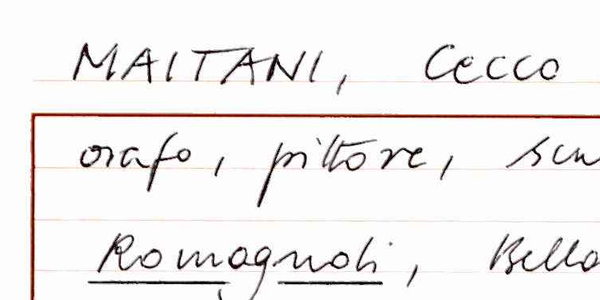 MAITANI, Cecco
orafo, pittore, scu
Romagnoli, Bello